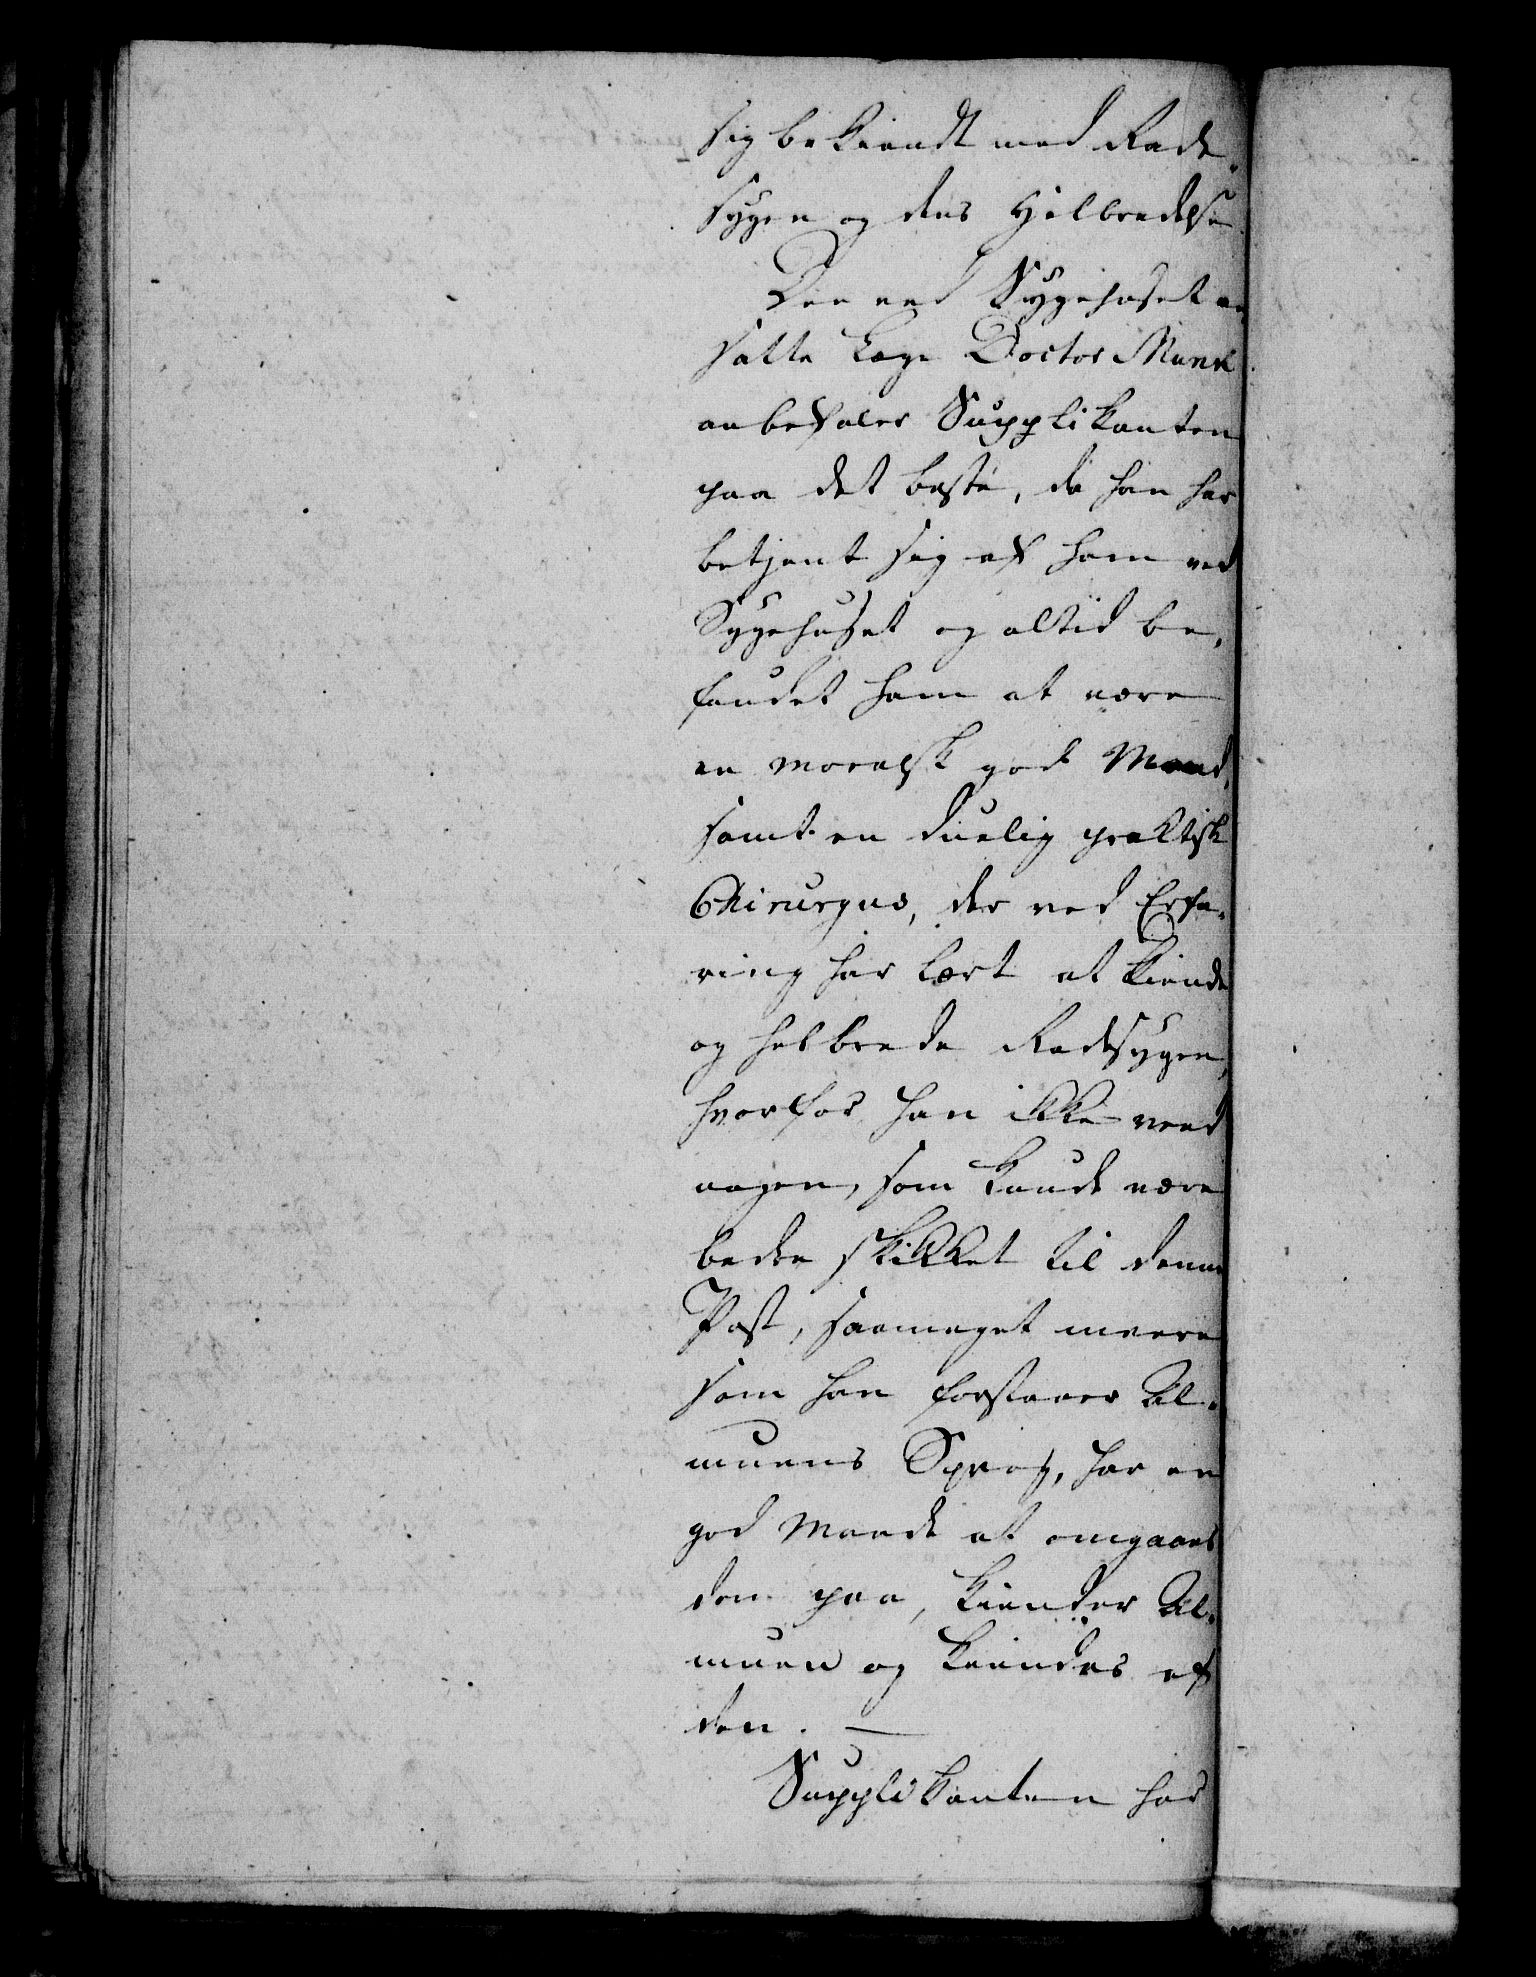 sig bekiendt med Rade-
sygen og dens Helbredelse.
Den ved Sygehuset an
satte Læge Doctor Munk
anbefaler Supplikanten
paa det beste, da han har
betjent sig af ham ved
Sygehuset og altid be-
fundet ham at være
en moralsk god Mand,
samt en duelig praktisk
Chirurgus, der ved Erfa-
ring har lært at kiende
og helbrede Radesygen,
hvorfor han ikke veed
nogen, som kunde være
bedre skikket til denne
Post, saameget meere
som han forstaaer Al-
muens Sprog, har en
god Maade at omgaaes
den paa, kiender Al-
muen og kiendes af
den. —
Supplikanten har